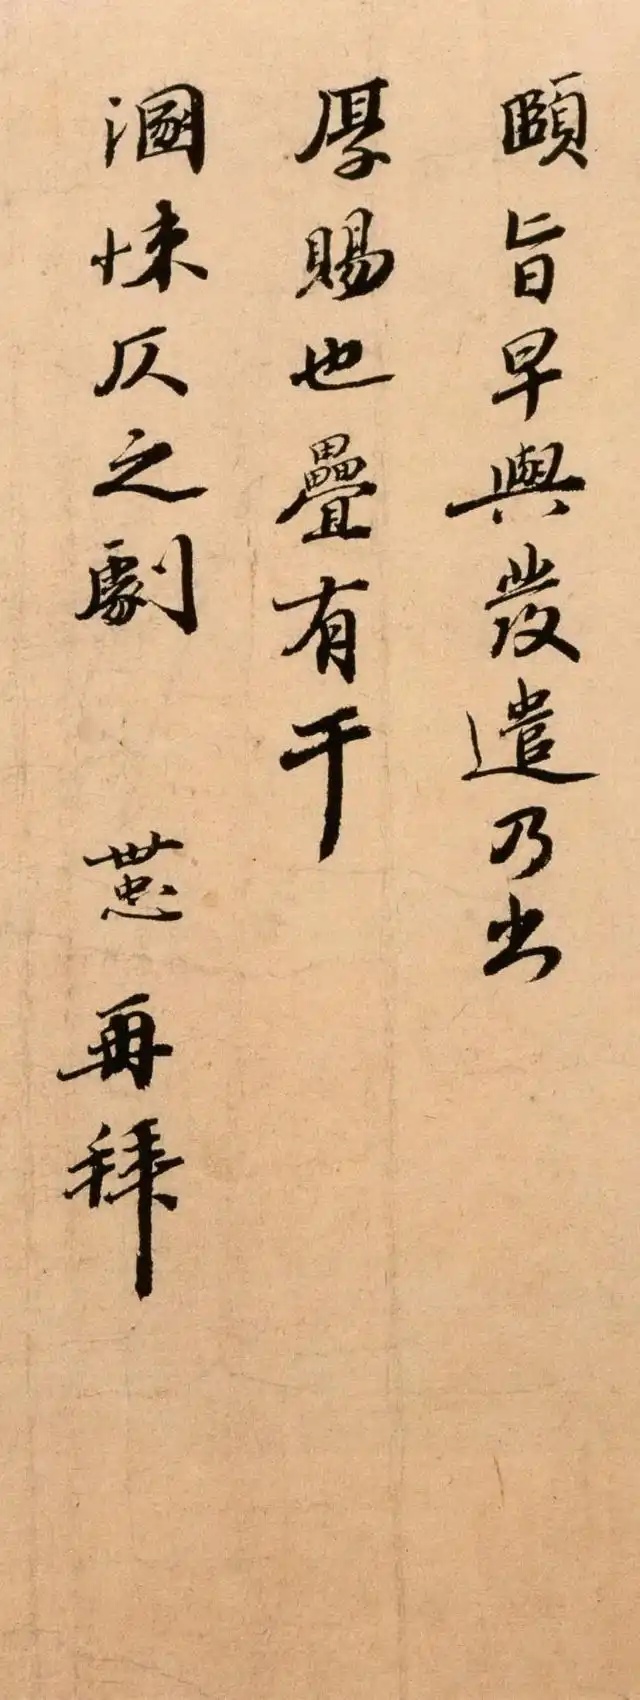 頤旨早與發遣乃出
厚賜也疊有干
溷悚仄之劇 再拜